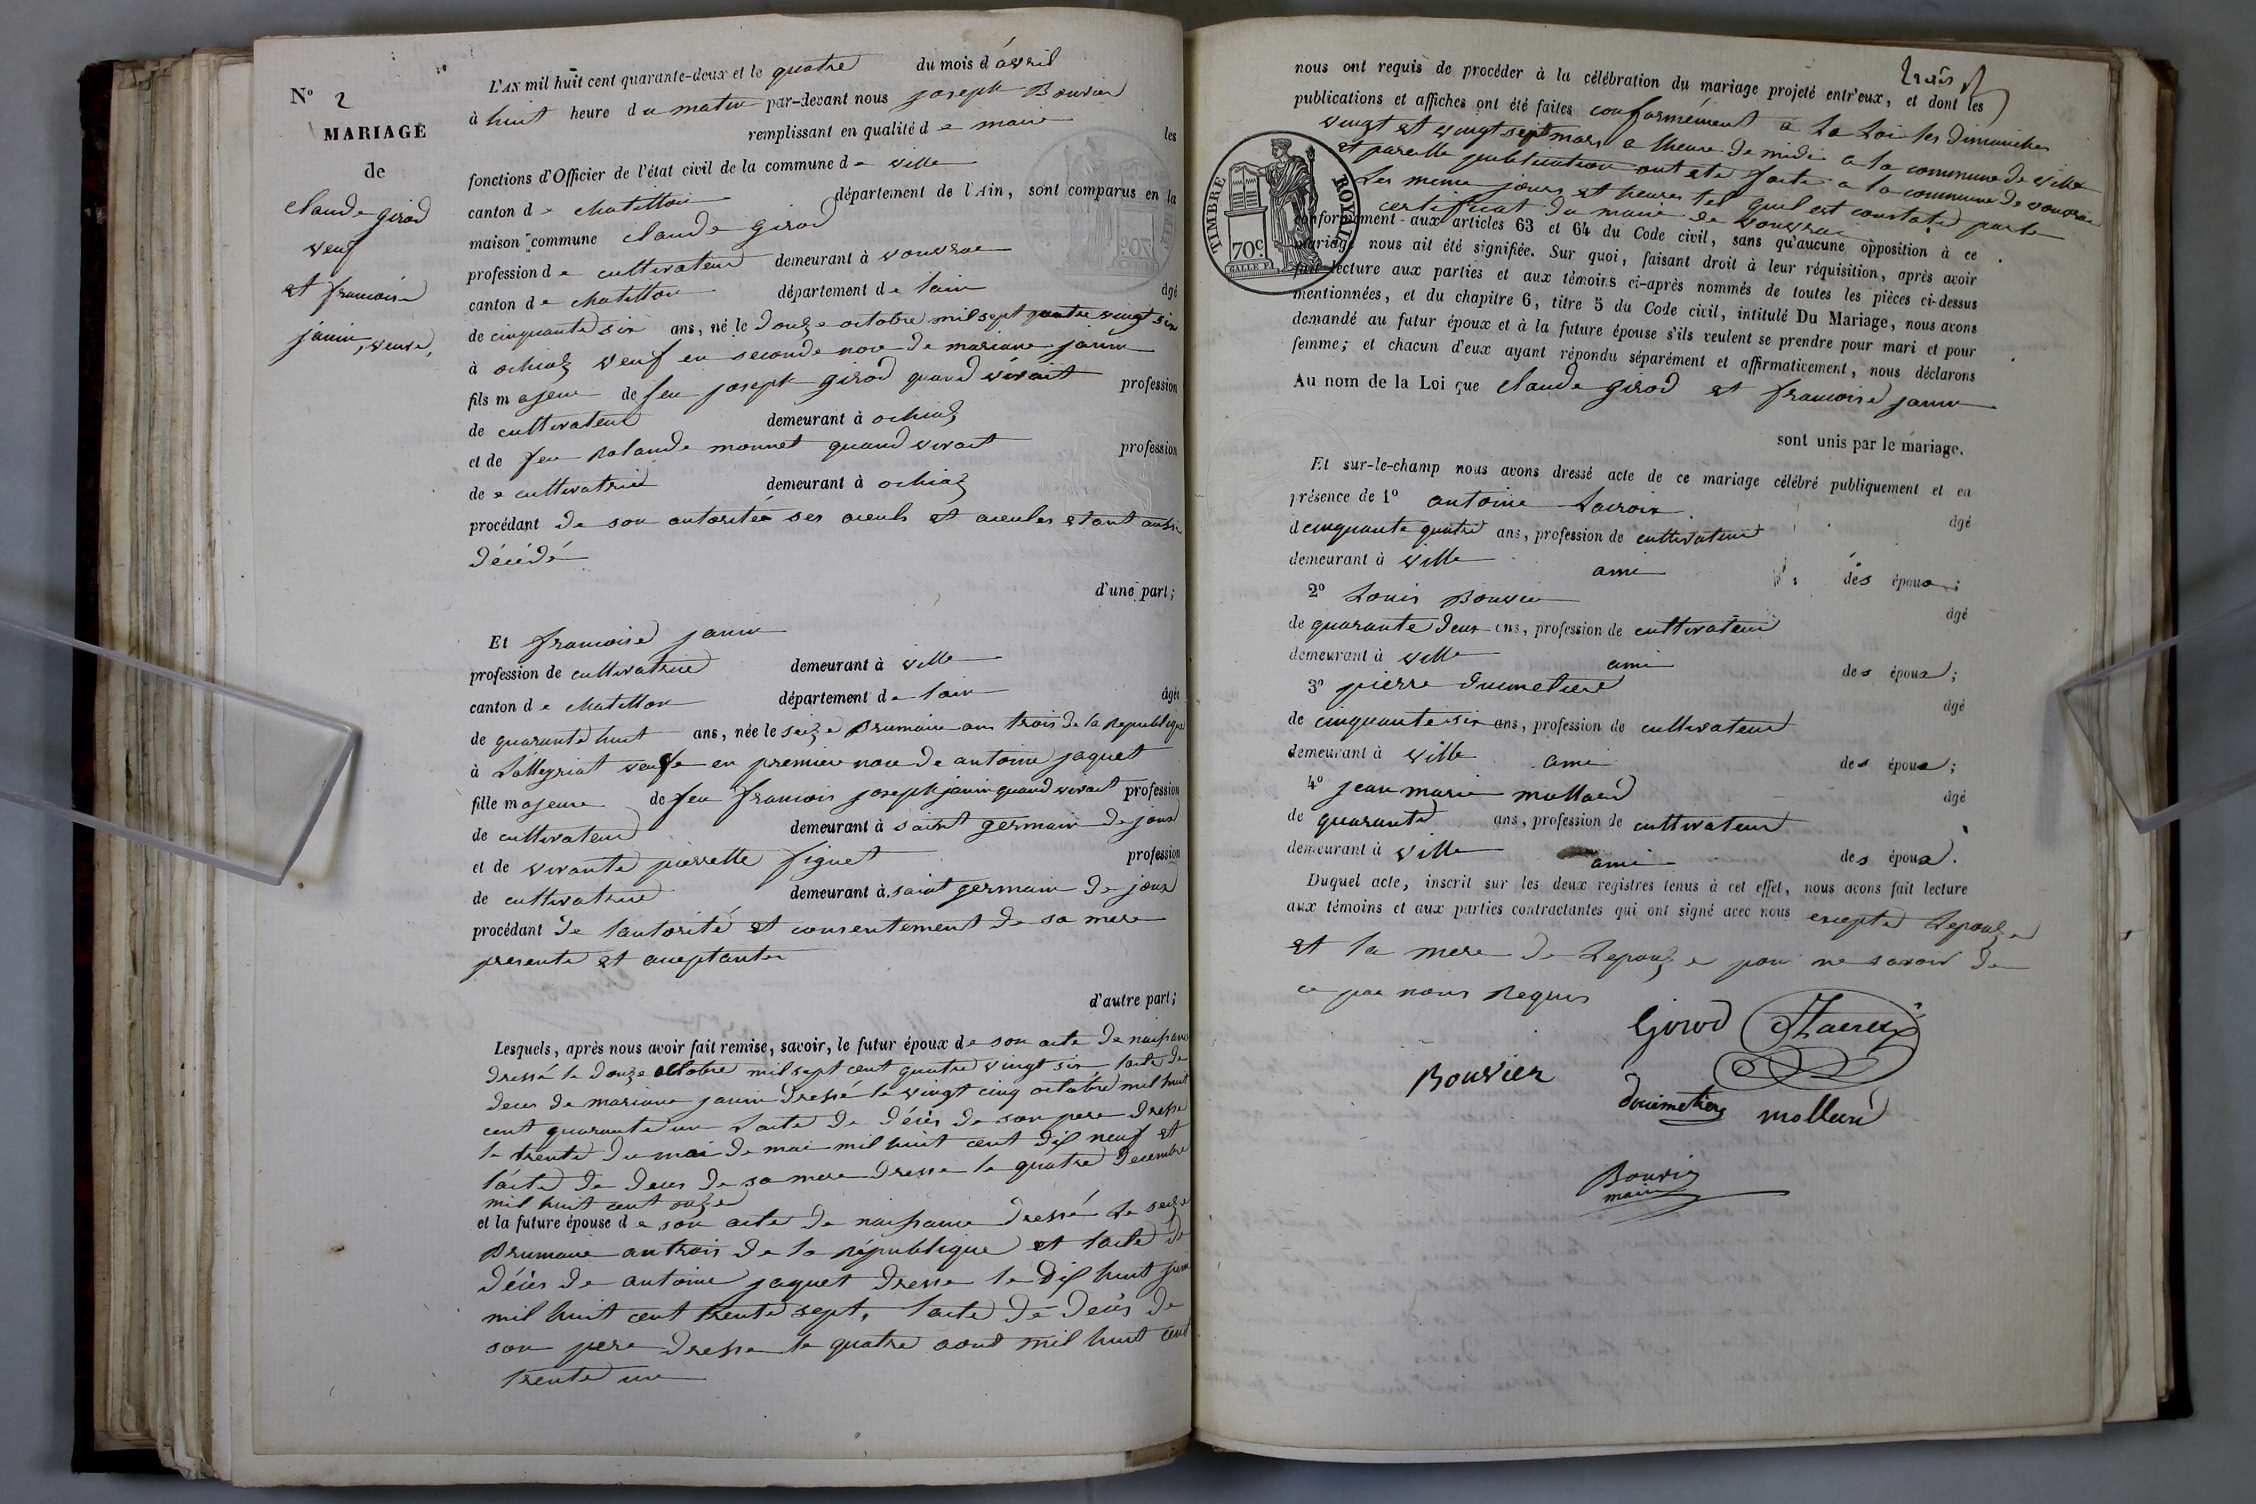 N° 2
MARIAGE
de
Claude girod
veuf
et francoise
janin, veuve,
L'AN mil huit cent quarante-deux et le quatre du mois d'avril
à huit heure du matin par-devant nous joseph Bouvier
remplissant en qualité de maire les
fonctions d'Officier de l'état civil de la commune de ville
canton de chatillon département de l'Ain, sont comparus en la
maison commune claude girod
profession de cultivateur demeurant à vouvrai
canton de chatillon département de lain âgé
de cinquante six ans, né le douze octobre mil sept quatre vingt six
à ochiaz veuf en seconde noce de mariane janin
fils majeur de feu joseph girod quand vivait profession
de cultivateur demeurant à ochiaz
et de feu Rolande monnet quand vivait profession
de cultivatrice demeurant à ochiaz
procédant de son autoritée ses aieuls et aieules etant aussi
décédé
d'une part;
Et francoise janin
profession de cultivatrice demeurant à ville
canton de chatillon département de lain âgée
de quarante huit ans, née le seize Brumaire an trois de la Republique
à Lallegriat veuve en premiere noce de antoine jaquet
fille majeure de feu francois joseph janin quand vivait profession
de cultivateur demeurant à saint germain de joux
et de vivante pierrette figuet profession
de cultivatrice demeurant à saint germain de joux
procédant de lautorité et consentement de sa mere
presente et aceptante
d'autre part;
Lesquels, après nous avoir fait remise, savoir, le futur époux de son acte de naissance
dressé le douze octobre mil sept cent quatre vingt six, lacte de
deces de mariane janin dressé le vingt cinq octobre mil huit
cent quarante un Lacte de décès de son pere dressé
le trente du moi de mai mil huit cent dix neuf et
lácte de deces de sa mere dresse le quatre decembre
mil huit cent onze
et la future épouse de son acte de naissance dressé le seize
Brumaire an trois de la république et lacte de
décès de antoine jaquet dresse le dix huit juin
mil huit cent trente sept, lacte de décès de
son pere dresse le quatre aout mil huit cent
trente un
trois
nous ont requis de procéder à la célébration du mariage projeté entr'eux, et dont les
publications et affiches ont été faites conformément a la Loi les dimanches
vingt et vingt sept mars a lheure de midi a la commune de ville
et pareille publication ont ete faite a la commune de vouvrai
Les meme jours et heures tel quil est constaté par le
certificat du maire de vouvrai
conformément aux articles 63 et 64 du Code civil, sans qu'aucune opposition à ce
mariage nous ait été signifiée. Sur quoi, faisant droit à leur réquisition, après avoir
fait lecture aux parties et aux témoins ci-après nommés de toutes les pièces ci-dessus
mentionnées, et du chapitre 6, titre 5 du Code civil, intitulé Du Mariage, nous avons
demandé au futur époux et à la future épouse s'ils veulent se prendre pour mari et pour
femme; et chacun d'eux ayant répondu séparément et affirmativement, nous déclarons
Au nom de la Loi que claude girod et francoise janin
sont unis par le mariage.
Et sur-le-champ nous avons dressé acte de ce mariage célébré publiquement et en
présence de 1° antoine Lacroix âgé
de cinquante quatre ans, profession de cultivateur
demeurant à ville ami des époux;
2° Louis Bouvier âgé
de quarante deux ans, profession de cultivateur
demeurant à ville ami des époux;
3° pierre ducimetiere âgé
de cinquante six ans, profession de cultivateur
demeurant à ville ami des époux;
4° jean marie mollard âgé
de quarante ans, profession de cultivateur
demeurant à ville ami des époux.
Duquel acte, inscrit sur les deux registres tenus à cet effet, nous avons fait lecture
aux témoins et aux parties contractantes qui ont signé avec nous excepté Lepouze
et la mere de Lepouze pour ne savoir de
ce par nous Requis
Girod
Bouvier
ducimetiere mollard
Bouvier
maire
TIMBRE ROYAL
70c.